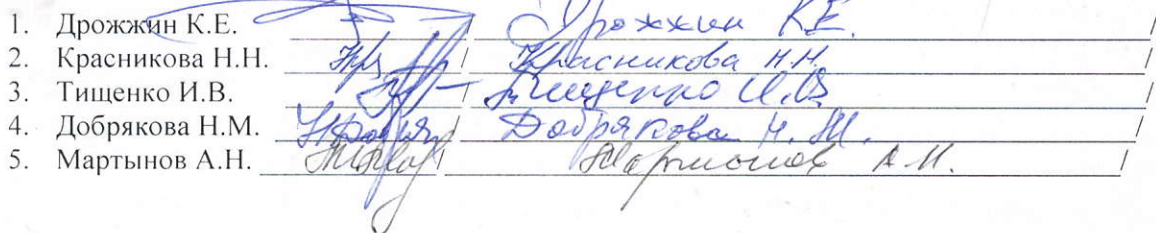 1. Дрожжин К.Е. / Дрожжин К.Е. /
2. Красникова Н.Н. / Красникова Н.Н. /
3. Тищенко И.В. / Тищенко И.В. /
4. Добрякова Н.М. / Добрякова Н.М. /
5. Мартынов А.Н. / Мартынов А.Н. /